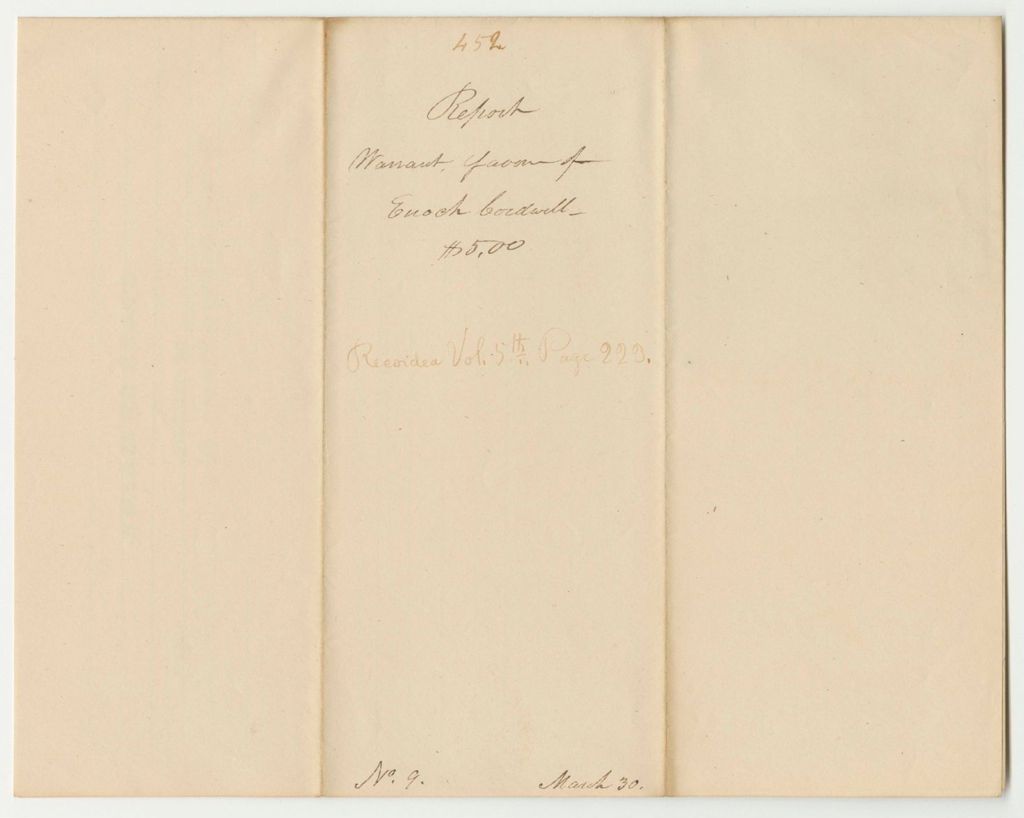 452
Report
Warrant, favour of
Enoch Cordwell
$5,00
Recorded Vol. 5th. Page 223.
No. 9. March 30.